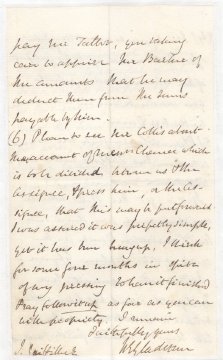 pay Mr Talbot, you taking
care to apprise Mr Barker of
the amounts that he may
deduct them from the sums
payable by him.
(6) Please to see Mr Collis about
the account of Chance which
is to be divided between us & the
assignee, & press him or the As-
signee, that this may be put forward.
I was assured it was perfectly simple,
yet it has been hung up, I think
for some five months in spite
of my pressing to have it finished
Pray follow it up as far as you can
with propriety. I remain
faithfully yours
WEGladstone